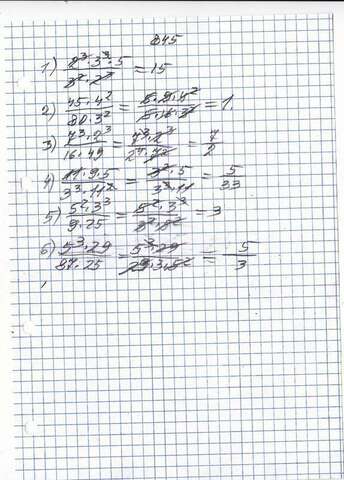 845
1) 2³·3³·5 / 3²·2³ = 15
2) 45·4² / 80·3² = 5·9·4² / 5·16·3² = 1.
3) 7³·2³ / 16·49 = 7³·2³ / 2⁴·7² = 7 / 2
4) 11·9·5 / 3³·11² = 3²·5 / 3³·11 = 5 / 33
5) 5²·3³ / 9·25 = 5²·3³ / 3²·5² = 3
6) 5³·29 / 87·25 = 5³·29 / 29·3·5² = 5 / 3